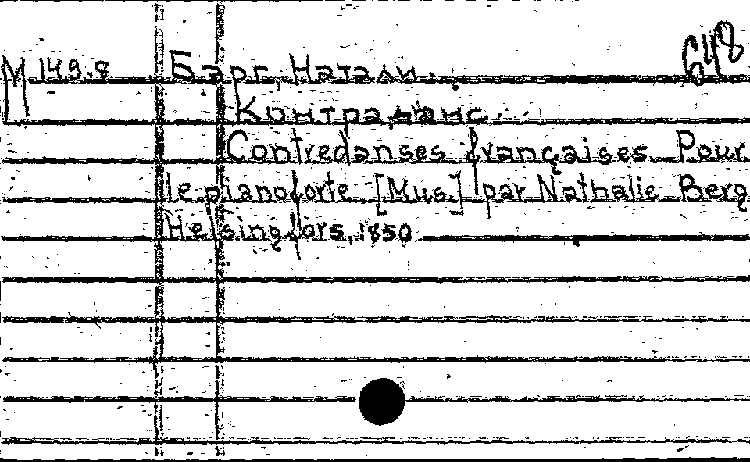 М 149.8 Барг, Натали. 648
Контраданс.
Contredanses françaises. Pour
le pianoforte. [Mus.] par Nathalie Berg
Helsingfors, 1850